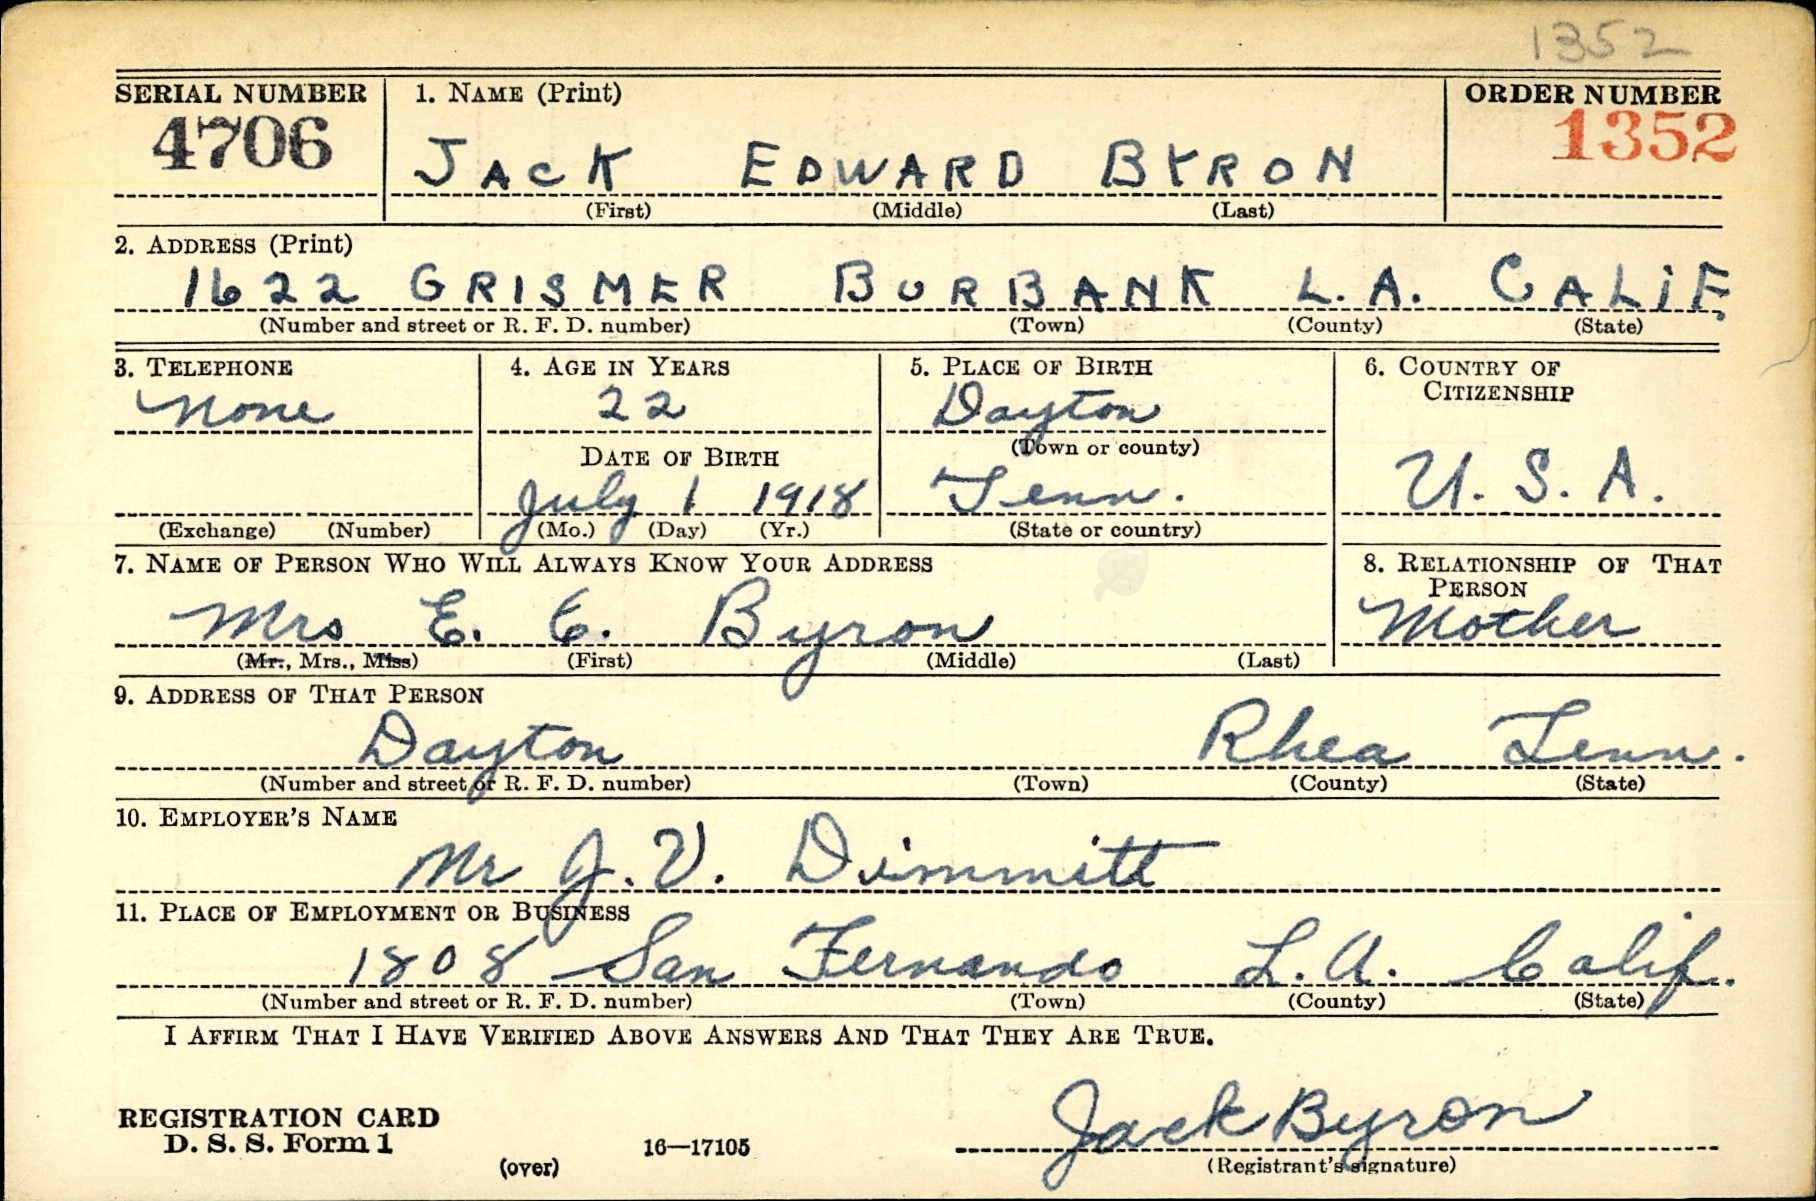 1352
SERIAL NUMBER 1. NAME (Print) ORDER NUMBER
4706 JACK EDWARD BYRON 1352
(First) (Middle) (Last)
2. ADDRESS (Print)
1622 GRISMER BURBANK L.A. CALIF.
(Number and street or R. F. D. number) (Town) (County) (State)
3. TELEPHONE 4. AGE IN YEARS 5. PLACE OF BIRTH 6. COUNTRY OF
CITIZENSHIP
None 22 Dayton
(Town or county)
DATE OF BIRTH
July 1 1918 Tenn. U. S. A.
(Exchange) (Number) (Mo.) (Day) (Yr.) (State or country)
7. NAME OF PERSON WHO WILL ALWAYS KNOW YOUR ADDRESS 8. RELATIONSHIP OF THAT
PERSON
Mrs E. C. Byron Mother
(Mr., Mrs., Miss) (First) (Middle) (Last)
9. ADDRESS OF THAT PERSON
Dayton Rhea Tenn.
(Number and street or R. F. D. number) (Town) (County) (State)
10. EMPLOYER'S NAME
Mr J. V. Dimmitt
11. PLACE OF EMPLOYMENT OR BUSINESS
1808 San Fernando L. A. Calif.
(Number and street or R. F. D. number) (Town) (County) (State)
I AFFIRM THAT I HAVE VERIFIED ABOVE ANSWERS AND THAT THEY ARE TRUE.
Jack Byron
REGISTRATION CARD
D. S. S. Form 1 16—17105
(over) (Registrant's signature)